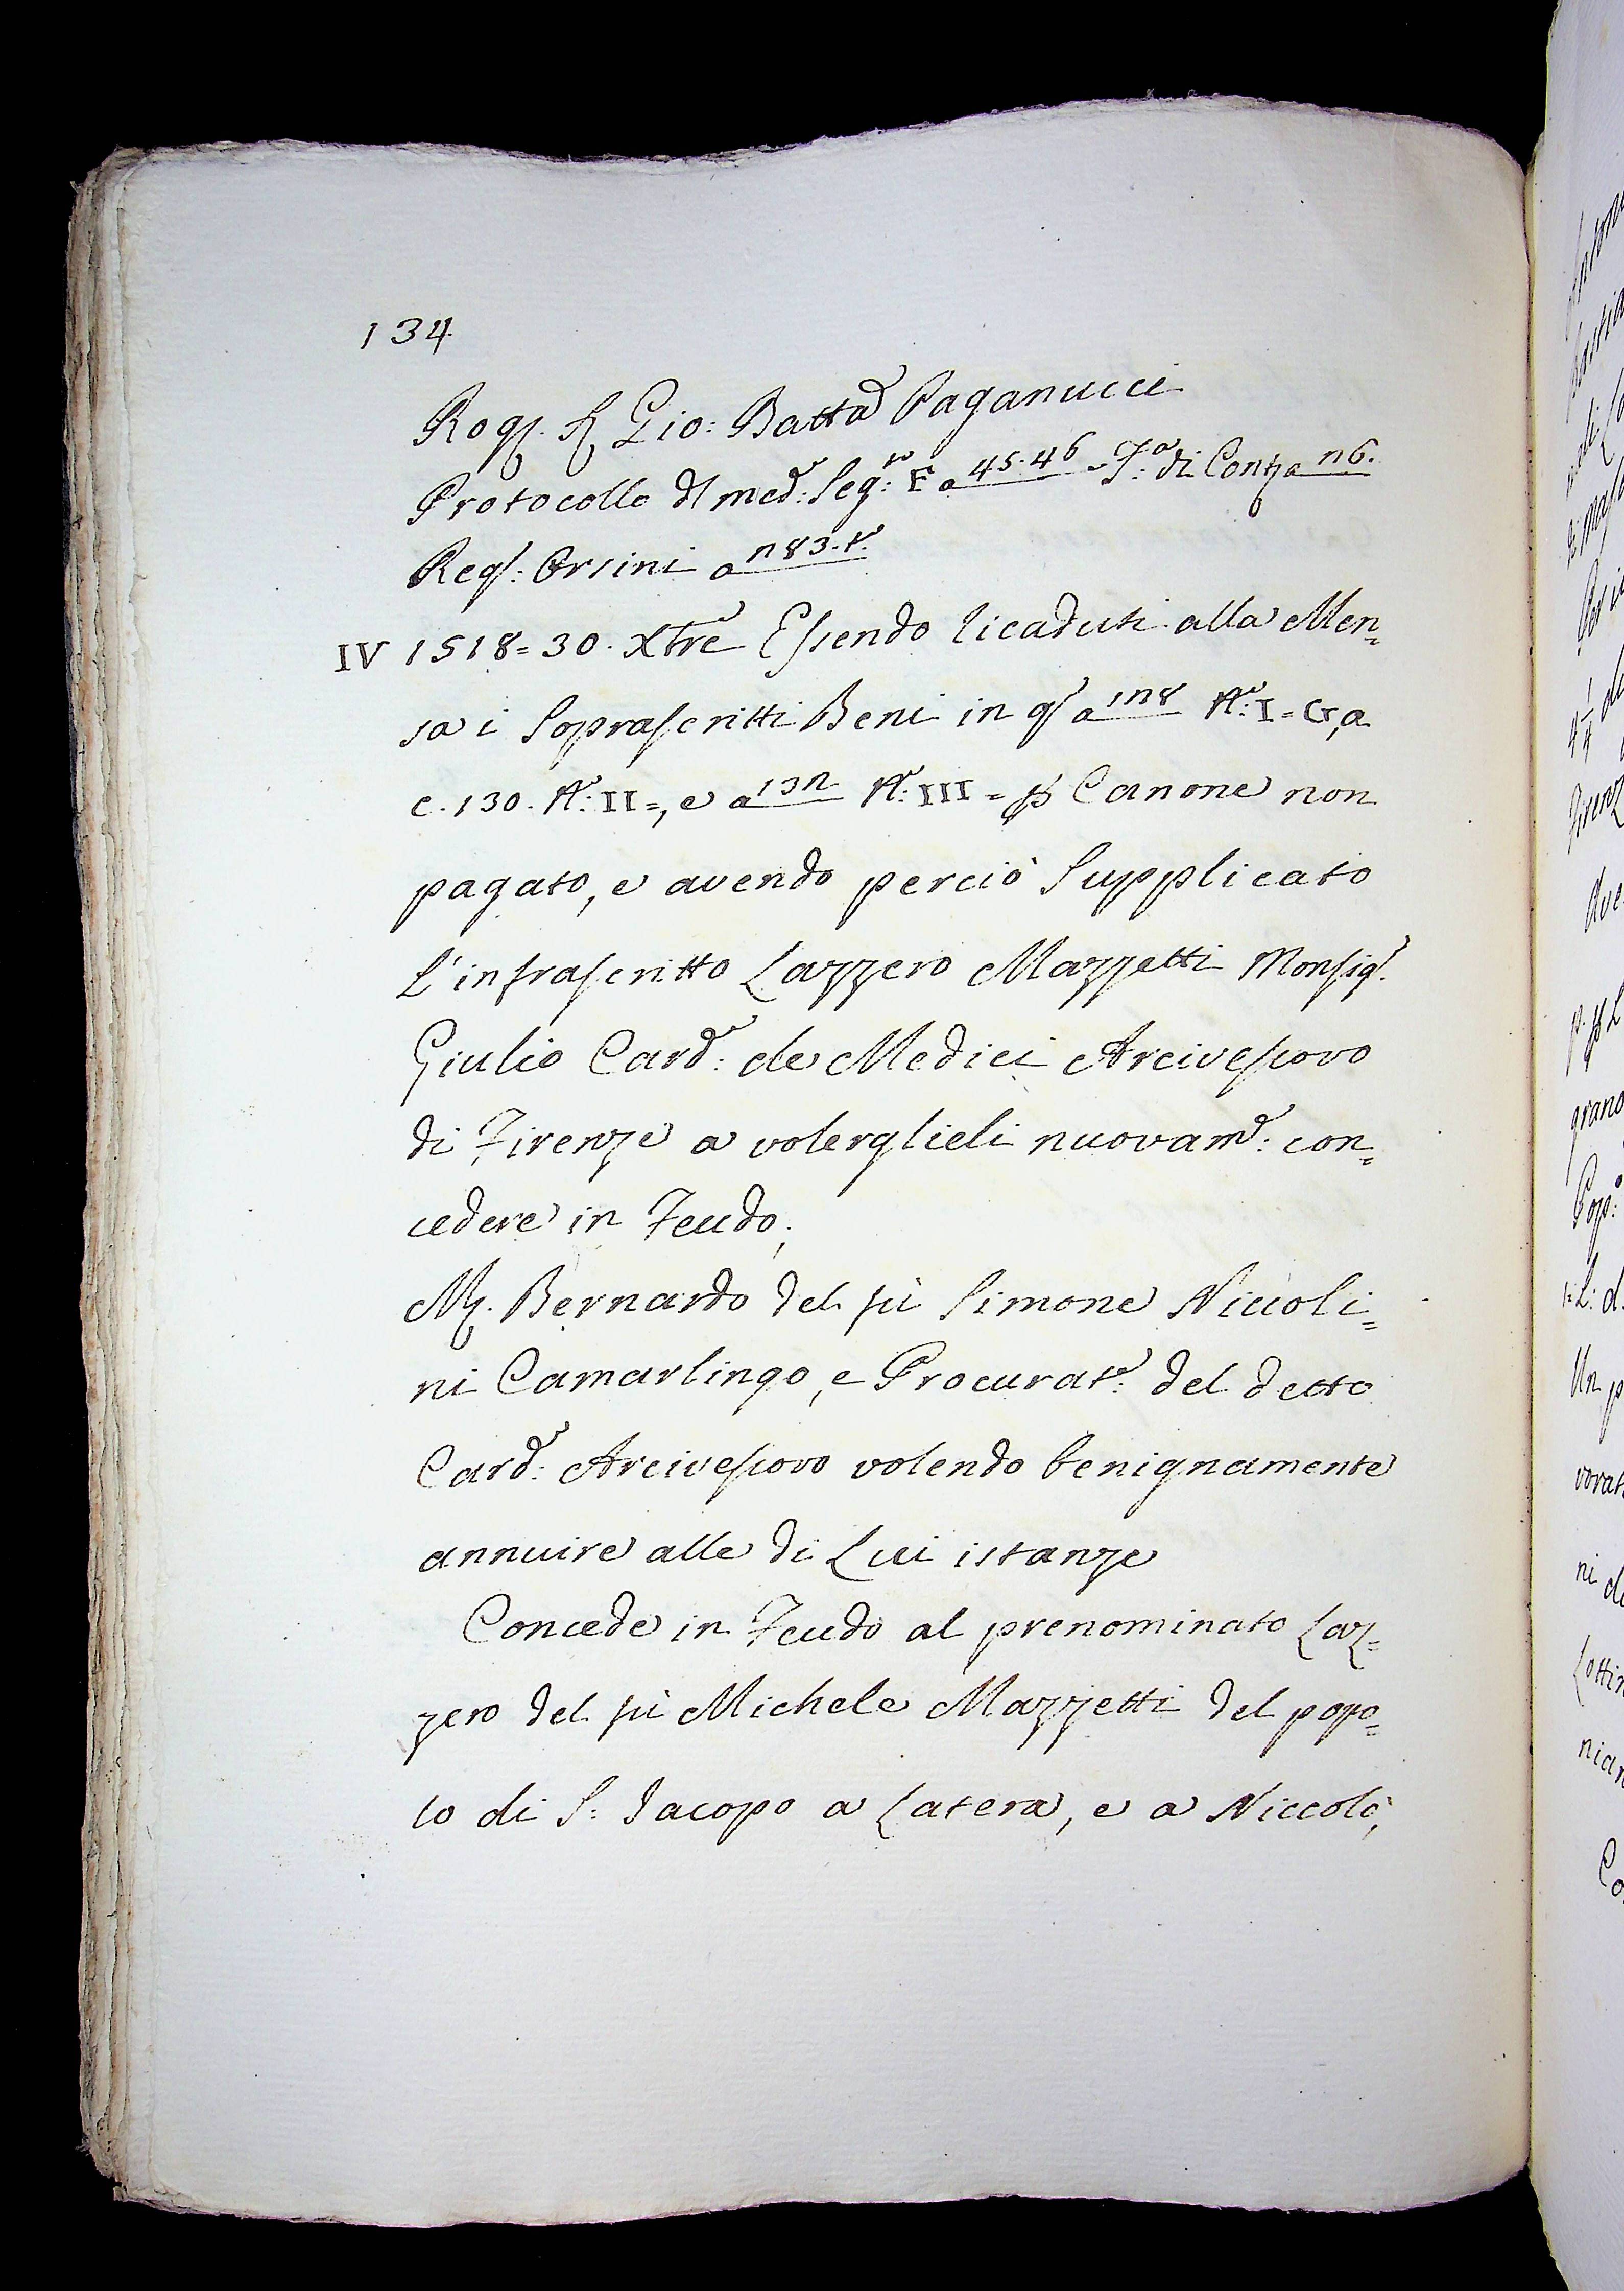 134
Rog. S. Gio: Batta Paganucci
Protocollo dl med: Seg: E a 45.46 di Conta n6.
Reg: Orsini a n83.t.
IV 1518=30. Xbre Essendo licaduti alla Men=
sa i Soprascritti Beni in q a 1n8 N: I=G, a
c. 130. N: II=, e a 13n N: III= p Canone non
pagato, e avendo perciò Supplicato
L'infrascritto Lazzero Mazzetti Monsig.
Giulio Card: de Medici Arcivescovo
di Firenze a volerglieli nuovam: con=
cedere in Feudo;
M. Bernardo del fù Simone Niccoli=
ni Camarlingo, e Procurat: del detto
Card: Arcivescovo volendo benignamente
annuire alle di Lui istanze
Concede in Feudo al prenominato Laz=
zero del fù Michele Mazzetti del popo=
lo di S: Jacopo a Latera, e a Niccolò,